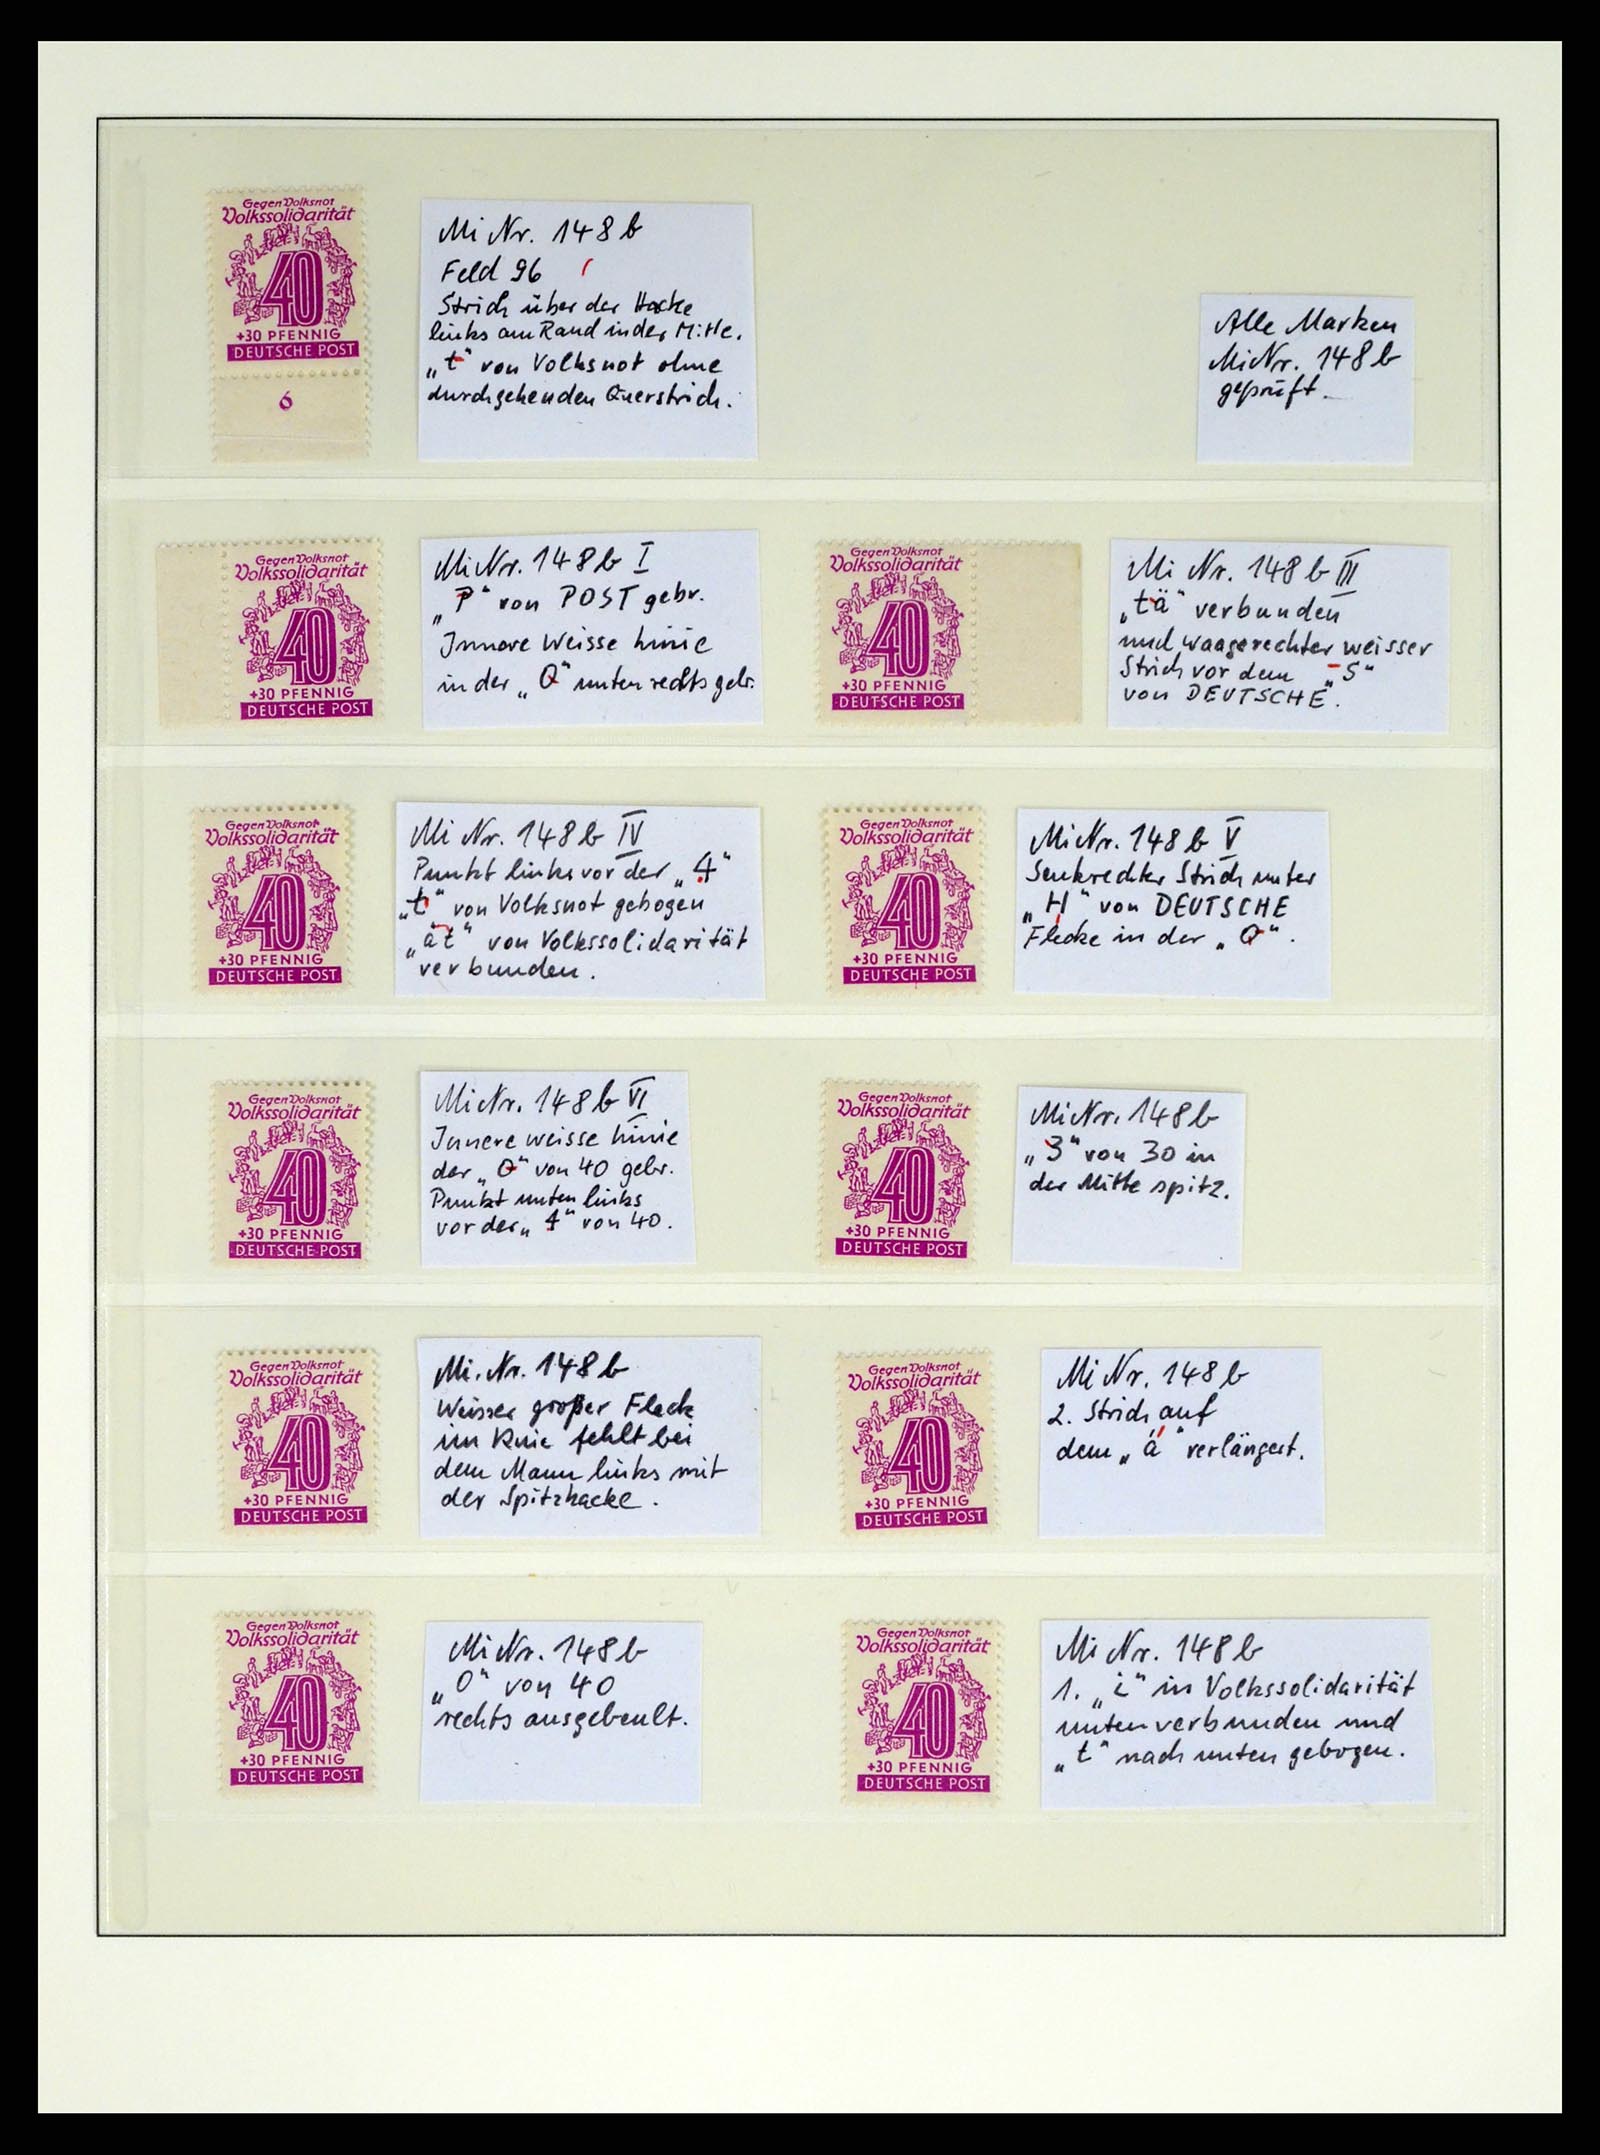 Gegen Volksnot
Volkssolidarität
40
+30 PFENNIG
DEUTSCHE POST
6
Mi Nr. 148 b
Feld 96
Strich über der Hacke
links am Rand in der Mitte.
„t“ von Volksnot ohne
durchgehenden Querstrich.
Alle Marken
Mi Nr. 148 b
geprüft.
Gegen Volksnot
Volkssolidarität
40
+30 PFENNIG
DEUTSCHE POST
Mi Nr. 148 b I
„P“ von POST gebr.
Innere weisse Linie
in der „0“ unten rechts gebr.
Gegen Volksnot
Volkssolidarität
40
+30 PFENNIG
DEUTSCHE POST
Mi Nr. 148 b III
„tä“ verbunden
und waagerechter weisser
Strich vor dem „S“
von DEUTSCHE.
Gegen Volksnot
Volkssolidarität
40
+30 PFENNIG
DEUTSCHE POST
Mi Nr. 148 b IV
Punkt links vor der „4“
„t“ von Volksnot gebogen
„ät“ von Volkssolidarität
verbunden.
Gegen Volksnot
Volkssolidarität
40
+30 PFENNIG
DEUTSCHE POST
Mi Nr. 148 b V
Senkrechter Strich unter
„H“ von DEUTSCHE
Flecke in der „0“.
Gegen Volksnot
Volkssolidarität
40
+30 PFENNIG
DEUTSCHE POST
Mi Nr. 148 b VI
Innere weisse Linie
der „0“ von 40 gebr.
Punkt unten links
vor der „4“ von 40.
Gegen Volksnot
Volkssolidarität
40
+30 PFENNIG
DEUTSCHE POST
Mi Nr. 148 b
„3“ von 30 in
der Mitte spitz.
Gegen Volksnot
Volkssolidarität
40
+30 PFENNIG
DEUTSCHE POST
Mi. Nr. 148 b
Weisser großer Fleck
im Knie fehlt bei
dem Mann links mit
der Spitzhacke.
Gegen Volksnot
Volkssolidarität
40
+30 PFENNIG
DEUTSCHE POST
Mi Nr. 148 b
2. Strich auf
dem „ä“ verlängert.
Gegen Volksnot
Volkssolidarität
40
+30 PFENNIG
DEUTSCHE POST
Mi Nr. 148 b
„0“ von 40
rechts ausgebeult.
Gegen Volksnot
Volkssolidarität
40
+30 PFENNIG
DEUTSCHE POST
Mi Nr. 148 b
1. „i“ in Volkssolidarität
unten verbunden und
„t“ nach unten gebogen.